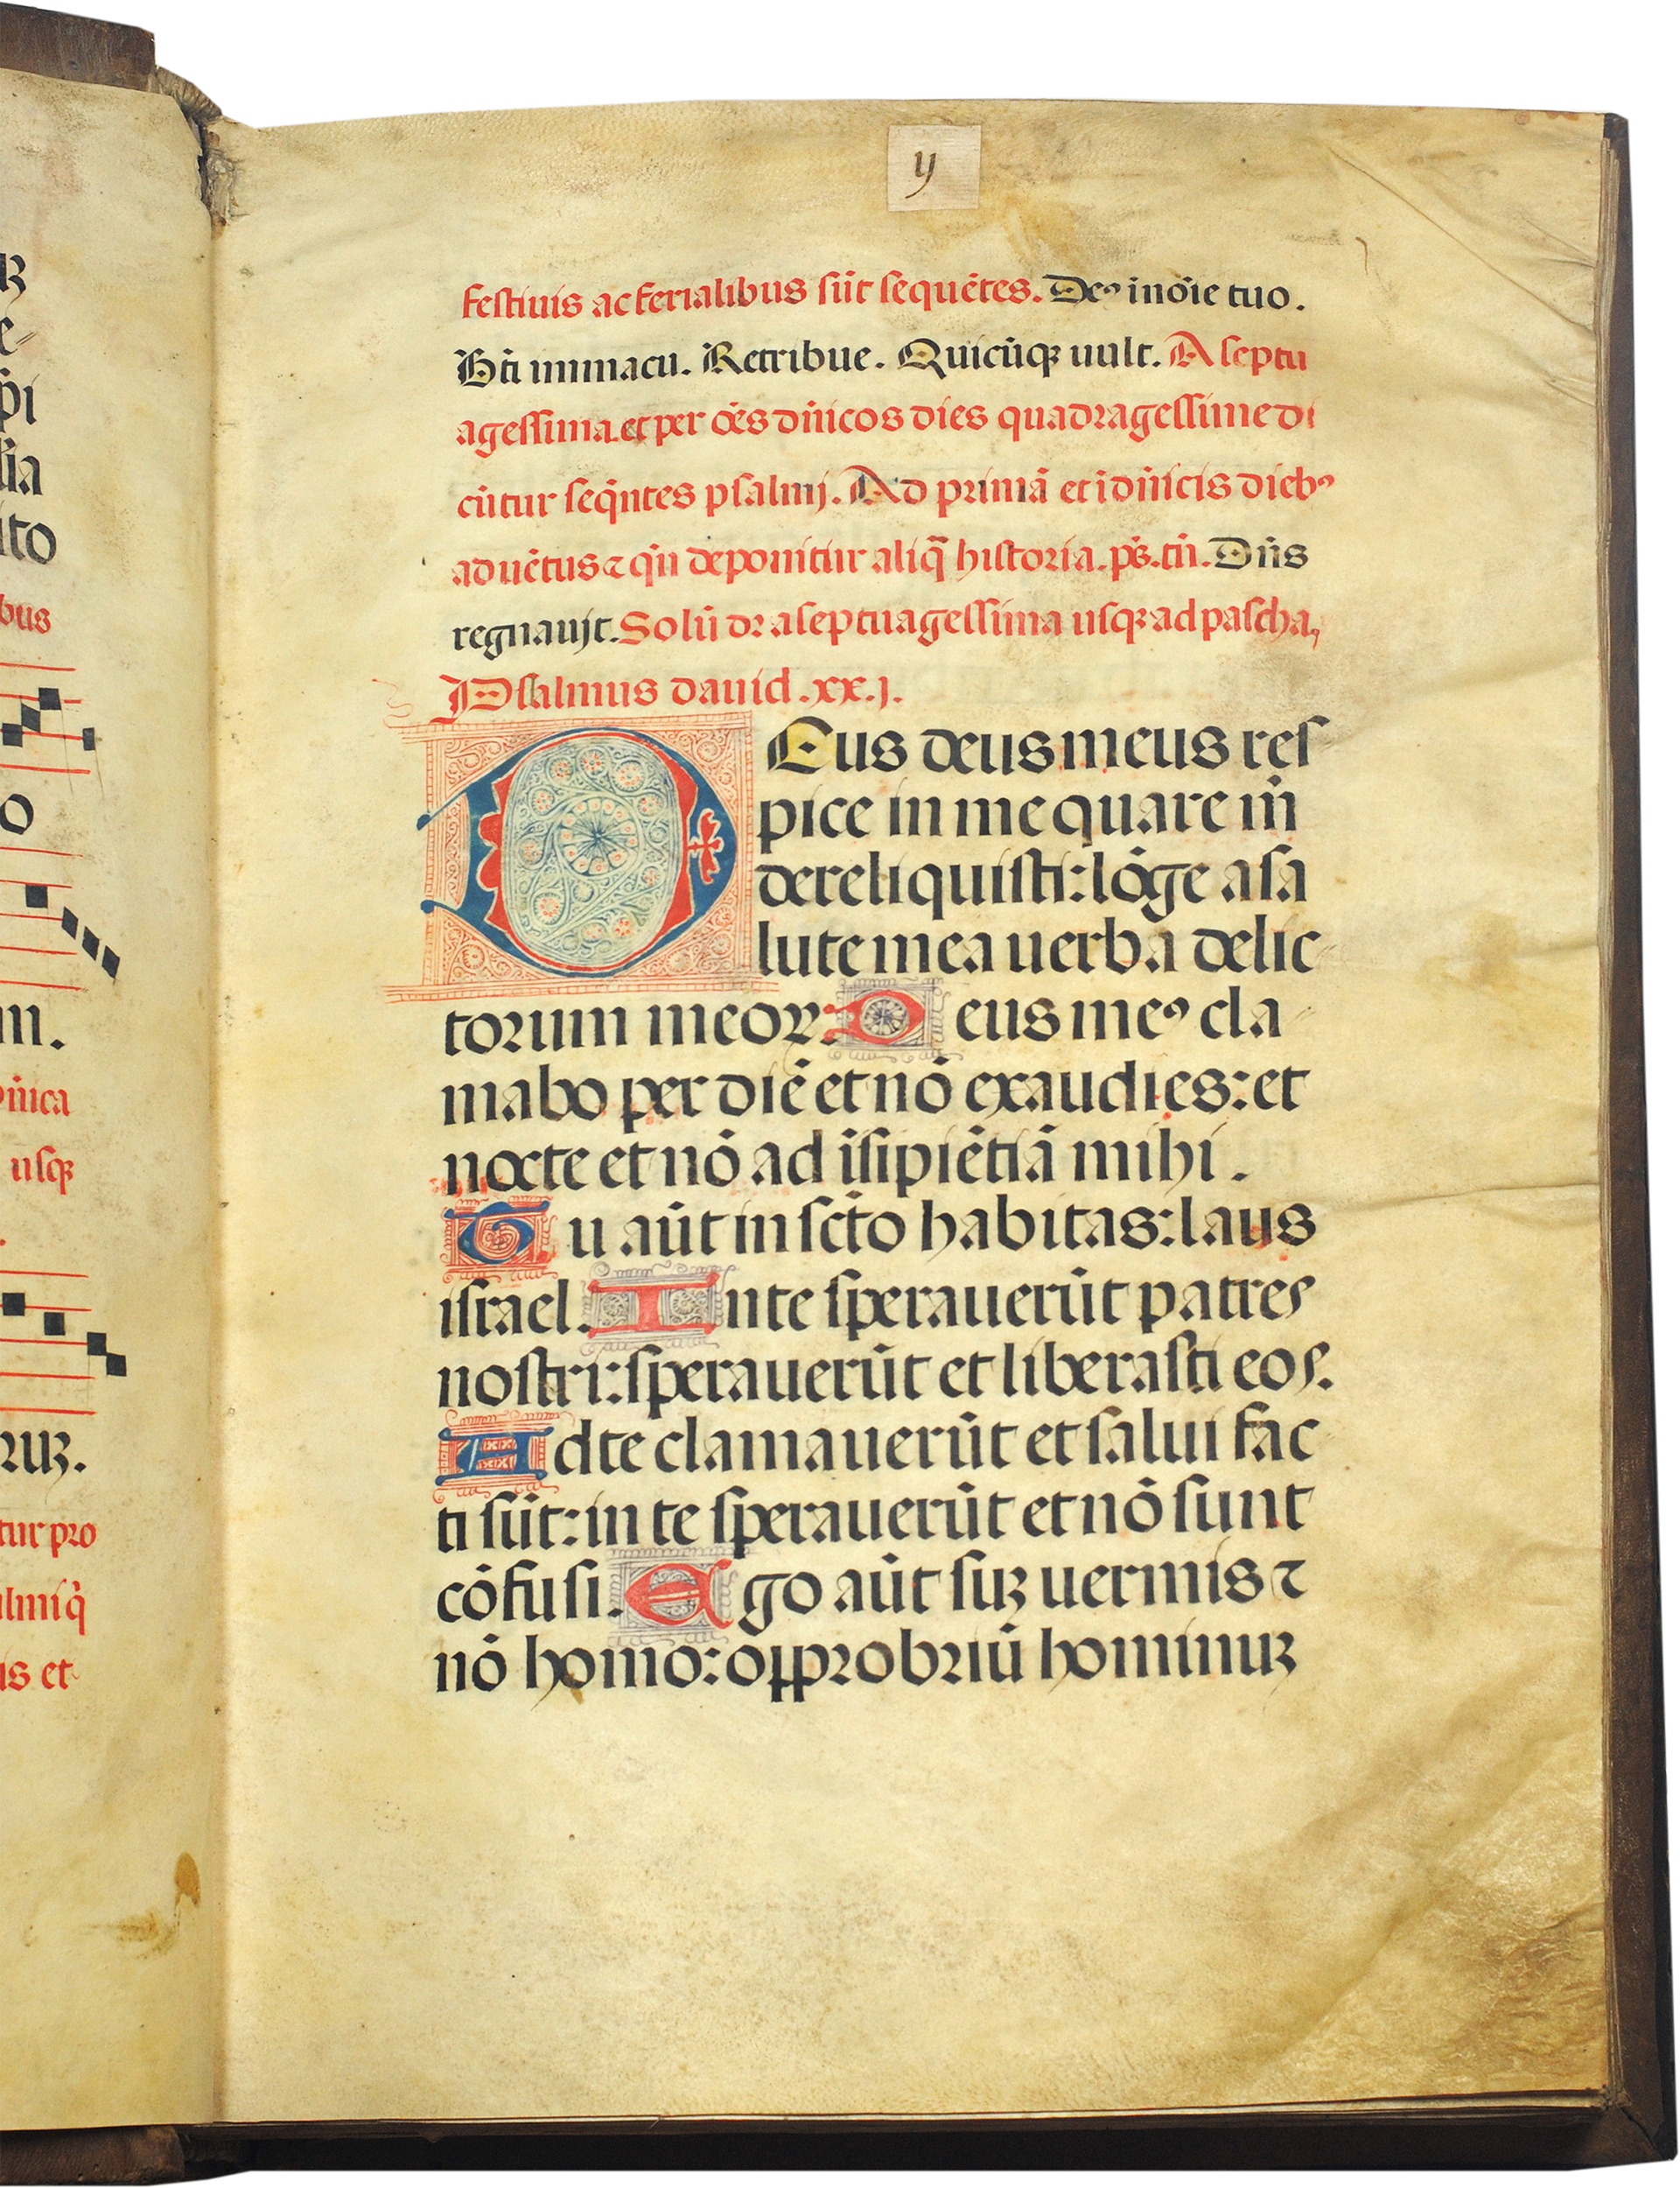 R
e-
p̄i
lia
ito
bus
o
m.
Dn̄ica
usq̄
ruȝ.
tur pro
almi q̇
is et
y
festiuis ac ferialibus sūt sequētes. Deꝰ in nōie tuo.
Bt̄i immacu. Retribue. Quicūqȝ uult. A septu
agessima et per oēs dn̄icos dies quadragessime di
cūtur seqn̄tes psalmj. Ad primā et ī dn̄icis diebꝰ
aduētus ⁊ qn̄ deponitur aliq̄ historia. ps̄. tn̄. Dn̄s
regnauit. Solū dr̄ a septuagessima usqȝ ad pascha,
Psalmus dauid .xx.j.
Deus deus meus res
pice in me quare m̄
dereliquisti: lōge a sa
lute mea uerba delic
torum meoꝝ. Deus meꝰ cla
mabo per diē et nō exaudies: et
nocte et nō ad īsipiētiā mihi.
Tu aūt in sc̄to habitas: laus
israel. In te sperauerūt patres
nostri: sperauerūt et liberasti eos.
Ad te clamauerūt et salui fac
ti sūt: in te sperauerūt et nō sunt
cōfusi. Ego aūt suȝ uermis ⁊
nō homo: opprobriū hominuȝ